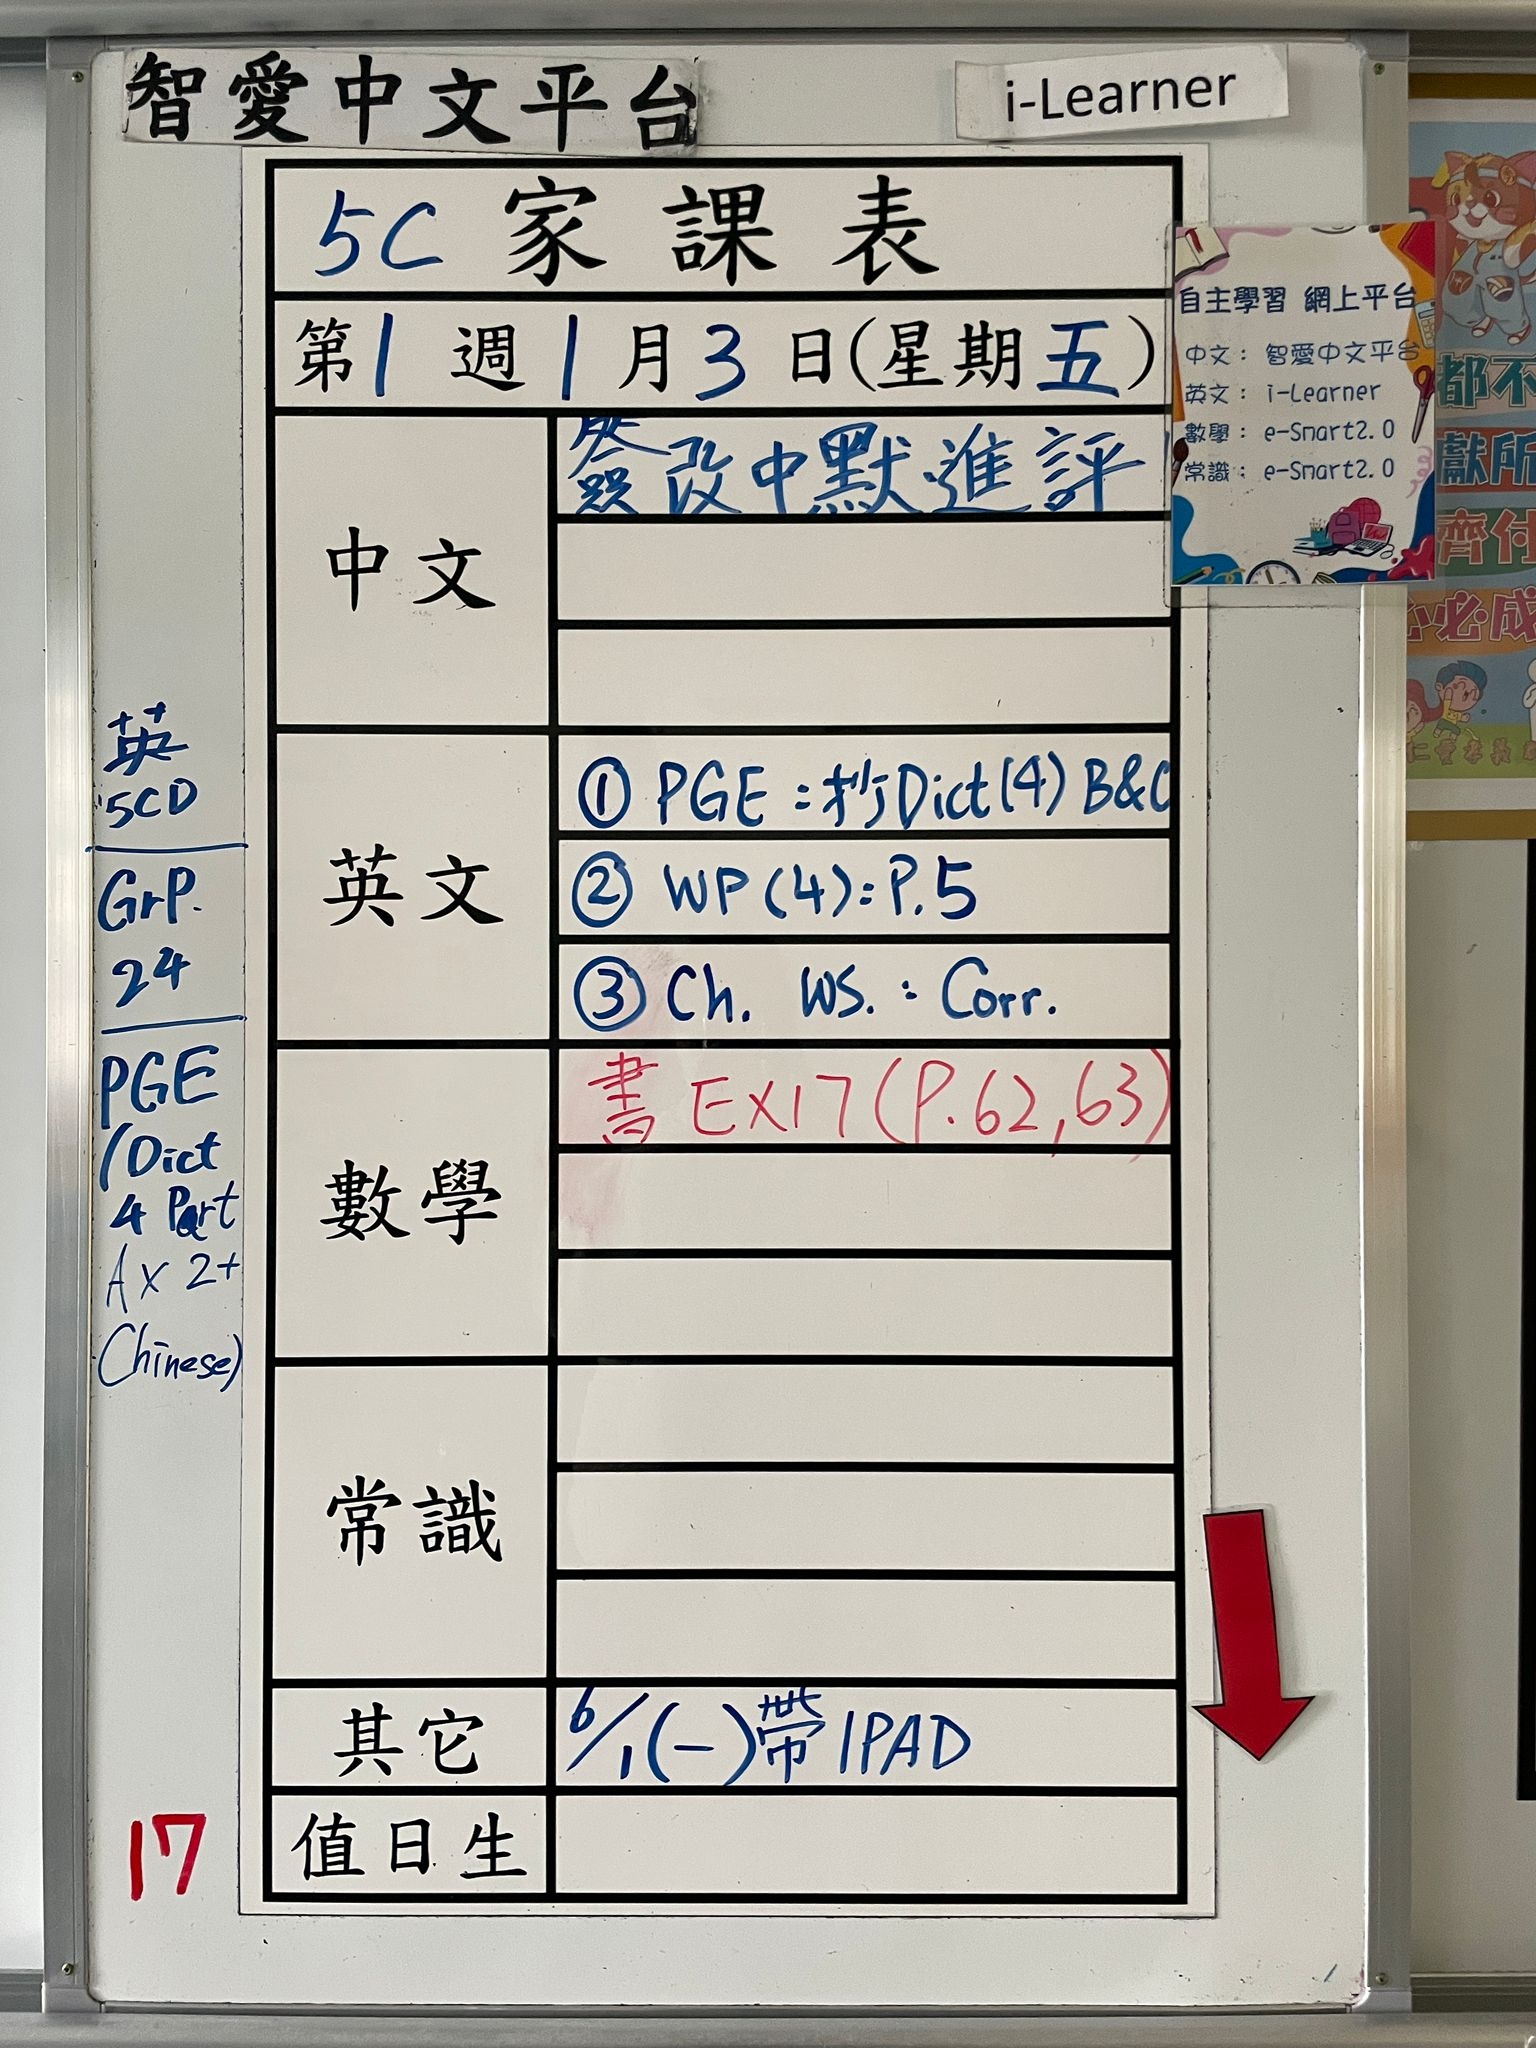 智愛中文平台
i-Learner
5C 家課表
第1週1月3日(星期五)
中文
簽改中默進評
英文
① PGE:抄Dict(4) B&C
② WP(4):P.5
③ Ch. WS.: Corr.
數學
書 EX17(P.62,63)
常識
其它
6/1(一)帶IPAD
值日生
英
5CD
GrP.
24
PGE
(Dict
4 Part
A x 2+
Chinese)
17
自主學習 網上平台
中文: 智愛中文平台
英文: i-Learner
數學: e-Smart2.0
常識: e-Smart2.0
都不
獻所
齊付
心必成
仁愛孝義